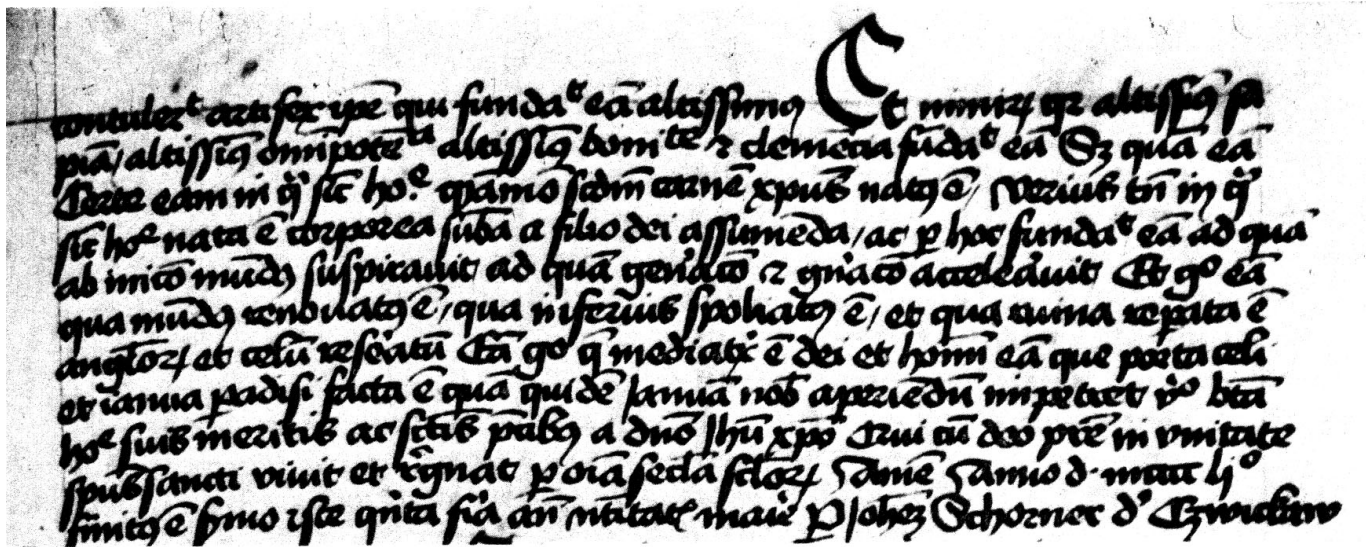 contulerᵗ artifex ipē qui fundaᵗ eā altissimꝰ Et nimirꝝ qꝛ altissimꝰ sa
piā / altissimꝰ omīpotēᵗⁱᵃ altissimꝰ boniᵗᵃᵗᵉ ⁊ clemēcia fūdaᵗ eā Sꝫ quā eā
Certe eam in qͣ sc̄t hoᵉ secdm̄ carnē xpūs natꝰ ē / verius tn̄ in qͣ
hoᵉ nata ē corporea sūba a filio dei assumēda / ac ꝑ hoc fundaᵗ eā ad quā
ab inicō mūdꝰ suspirauit ad quā gen̄acō ⁊ gn̄acō acceleᷓuit Et gᵒ eā
qua mūdꝰ renouatꝰ ē / qua infernus spoliatꝰ ē / et qua ruina reꝑata ē
angl̄orꝝ / et celū reseratū Eā gᵒ q̄ mediatͥx ē dei et hoīm eā que porta celi
et ianua ꝑadisi facta ē quā quidē Januā nob̄ aperiēdū impetret vͥᵒ btā
hoᵉ suis meritis ac sctīs p̄cibꝰ a dn̄o Jhū xpō Qui cū deo pr̄e in vnitate
spūssancti viuit et regnat ꝑ oīa secl̄a scl̄orꝝ Amē Anno d· mccc liᵒ
finitꝰ ē sermo iste qͥnta fīa an̄ natiuitatꝭ marie ꝑ Johez̄ Schorner dͤ Czwickaw